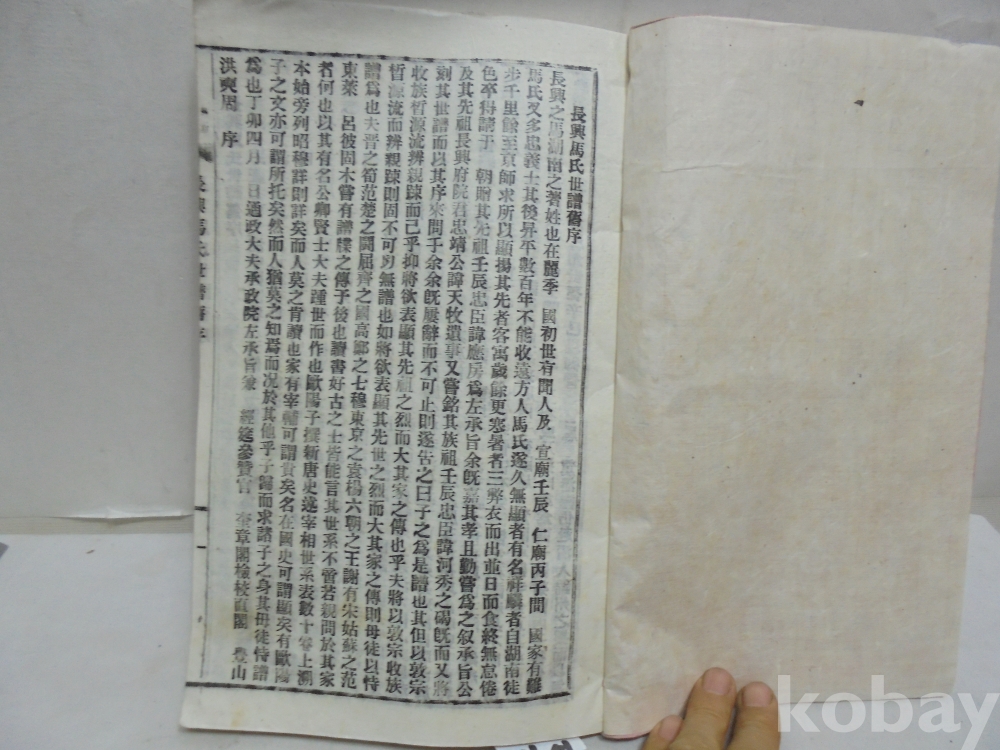 長興馬氏世譜舊序
長興之馬湖南之著姓也在麗季 國初世有聞人及 宣廟壬辰 仁廟丙子間 國家有難
馬氏又多忠義士其後昇平數百年不能收遠方人馬氏遂久無顯者有名祥麟者自湖南徒
步千里餘至京師求所以顯揚其先者客寓歲餘更寒暑者三弊衣而出並日而食終無怠倦
色卒得請于 朝贈其先祖壬辰忠臣諱應房爲左承旨余旣嘉其孝且勤嘗爲之叙承旨公
及其先祖長興府院君忠靖公諱天牧遺事又嘗銘其族祖壬辰忠臣諱河秀之碣旣而又將
刻其世譜而以其序來問于余余旣屢辭而不可止則遂告之曰子之爲是譜也其但以敦宗
收族晳源流辨親踈而已乎抑將欲表顯其先祖之烈而大其家之傳也乎夫將以敦宗收族
晳源流而辨親踈則固不可以無譜也如將欲表顯其先世之烈而大其家之傳則毋徒以恃
譜爲也夫晋之筍范楚之鬪屈齊之國高鄭之七穆東京之袁楊六朝之王謝有宋姑蘇之范
東萊之呂彼固未嘗有譜牒之傳于後也讀書好古之士皆能言其世系不啻若親問於其家
者何也以其有名公卿賢士大夫踵世而作也歐陽子撰新唐史遂宰相世系表數十卷上溯
本始旁列昭穆詳則詳矣而人莫之肯讀也家有宰輔可謂貴矣名在國史可謂顯矣有歐陽
子之文亦可謂所托矣然而人猶莫之知焉而况於其他乎子歸而求諸子之身其毋徒恃譜
爲也丁卯四月 日通政大夫承政院左承旨兼 經筵參贊官 奎章閣檢校直閣 豊山
洪奭周 序
長興馬氏世譜舊序 一
kobay